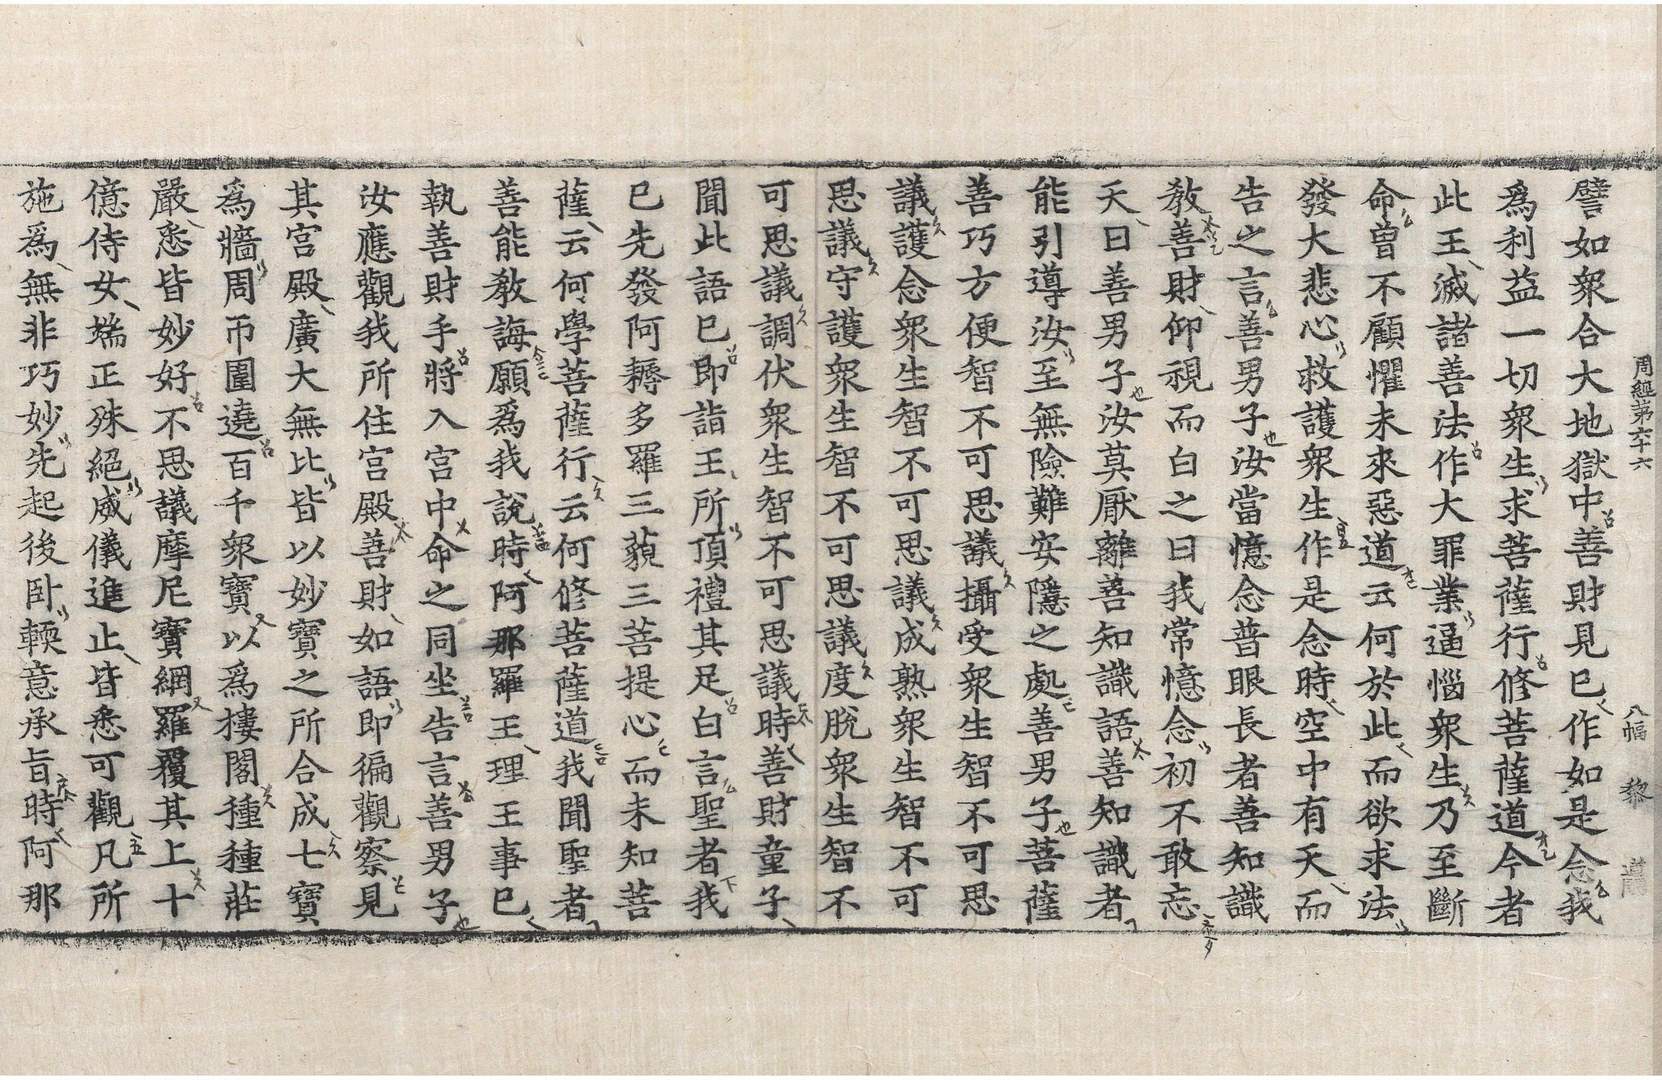 周經第六十六 八幅 黎
譬如衆合大地獄中善財見已作如是念我
爲利益一切衆生求菩薩行修菩薩道今者
此王滅諸善法作大罪業逼惱衆生乃至斷
命曾不顧懼未來惡道云何於此而欲求法
發大悲心救護衆生作是念時空中有天而
告之言善男子汝當憶念普眼長者善知識
教善財仰視而白之曰我常憶念初不敢忘
天曰善男子汝莫厭離善知識語善知識者
能引導汝至無險難安隱之處善男子菩薩
善巧方便智不可思議攝受衆生智不可思
議護念衆生智不可思議成熟衆生智不可
思議守護衆生智不可思議度脫衆生智不
可思議調伏衆生智不可思議時善財童子
聞此語已即詣王所頂禮其足白言聖者我
已先發阿耨多羅三藐三菩提心而未知菩
薩云何學菩薩行云何修菩薩道我聞聖者
善能教誨願爲我說時阿那羅王理王事已
執善財手將入宮中命之同坐告言善男子
汝應觀我所住宮殿善財如語即徧觀察見
其宮殿廣大無比皆以妙寶之所合成七寶
爲牆周帀圍遶百千衆寶以爲樓閣種種莊
嚴悉皆妙好不思議摩尼寶網羅覆其上十
億侍女端正殊絕威儀進止皆悉可觀凡所
施爲無非巧妙先起後卧輭意承旨時阿那